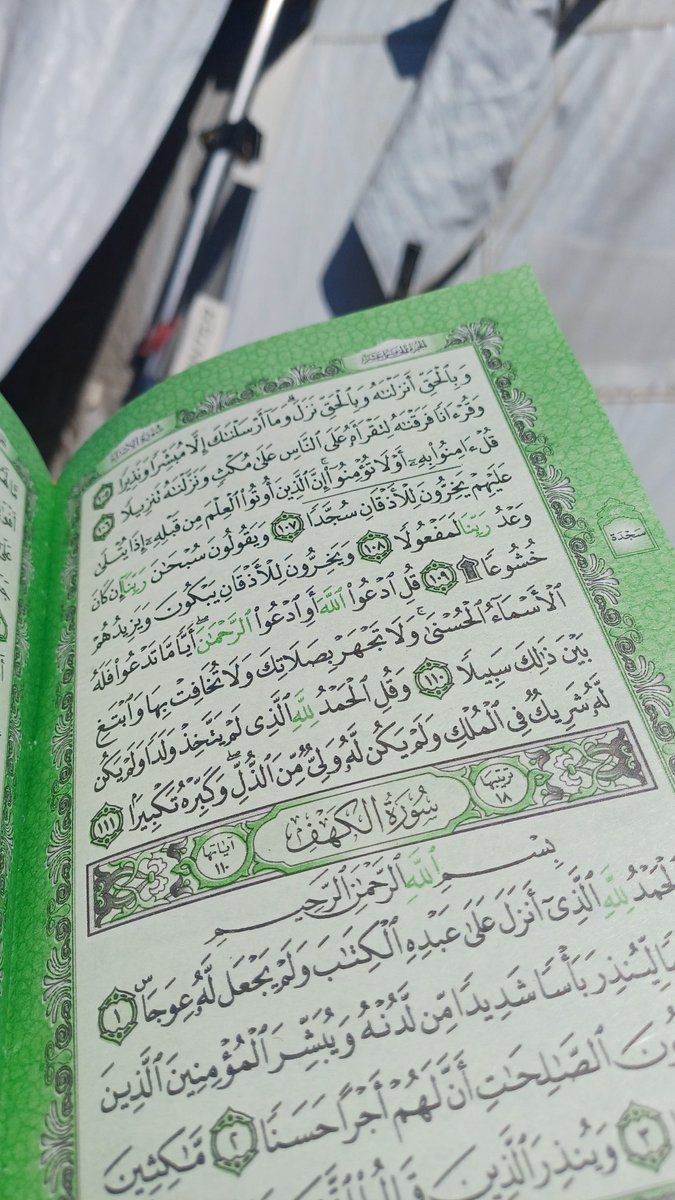 الجزء الخامس عشر
سورة الإسراء
وَبِٱلْحَقِّ أَنزَلْنَٰهُ وَبِٱلْحَقِّ نَزَلَ ۗ وَمَآ أَرْسَلْنَٰكَ إِلَّا مُبَشِّرًا وَنَذِيرًا ١٠٥
وَقُرْءَانًا فَرَقْنَٰهُ لِتَقْرَأَهُۥ عَلَى ٱلنَّاسِ عَلَىٰ مُكْثٍ وَنَزَّلْنَٰهُ تَنزِيلًا ١٠٦
قُلْ ءَامِنُوا۟ بِهِۦٓ أَوْ لَا تُؤْمِنُوٓا۟ ۚ إِنَّ ٱلَّذِينَ أُوتُوا۟ ٱلْعِلْمَ مِن قَبْلِهِۦٓ إِذَا يُتْلَىٰ
عَلَيْهِمْ يَخِرُّونَ لِلْأَذْقَانِ سُجَّدًا ١٠٧ وَيَقُولُونَ سُبْحَٰنَ رَبِّنَآ إِن كَانَ
وَعْدُ رَبِّنَا لَمَفْعُولًا ١٠٨ وَيَخِرُّونَ لِلْأَذْقَانِ يَبْكُونَ وَيَزِيدُهُمْ
خُشُوعًا ۩ ١٠٩ قُلِ ٱدْعُوا۟ ٱللَّهَ أَوِ ٱدْعُوا۟ ٱلرَّحْمَٰنَ ۖ أَيًّا مَّا تَدْعُوا۟ فَلَهُ
ٱلْأَسْمَآءُ ٱلْحُسْنَىٰ ۚ وَلَا تَجْهَرْ بِصَلَاتِكَ وَلَا تُخَافِتْ بِهَا وَٱبْتَغِ
بَيْنَ ذَٰلِكَ سَبِيلًا ١١٠ وَقُلِ ٱلْحَمْدُ لِلَّهِ ٱلَّذِى لَمْ يَتَّخِذْ وَلَدًا وَلَمْ يَكُن
لَّهُۥ شَرِيكٌ فِى ٱلْمُلْكِ وَلَمْ يَكُن لَّهُۥ وَلِىٌّ مِّنَ ٱلذُّلِّ ۖ وَكَبِّرْهُ تَكْبِيرًۢا ١١١
سَجدَة
ترتيبها ١٨ سُورَةُ الكَهْفِ آياتها ١١٠
بِسْمِ ٱللَّهِ ٱلرَّحْمَٰنِ ٱلرَّحِيمِ
لْحَمْدُ لِلَّهِ ٱلَّذِىٓ أَنزَلَ عَلَىٰ عَبْدِهِ ٱلْكِتَٰبَ وَلَمْ يَجْعَل لَّهُۥ عِوَجَاۜ ١
مًا لِّيُنذِرَ بَأْسًا شَدِيدًا مِّن لَّدُنْهُ وَيُبَشِّرَ ٱلْمُؤْمِنِينَ ٱلَّذِينَ
ونَ ٱلصَّٰلِحَٰتِ أَنَّ لَهُمْ أَجْرًا حَسَنًا ٢ مَّٰكِثِينَ
٣ وَيُنذِرَ ٱلَّذِينَ